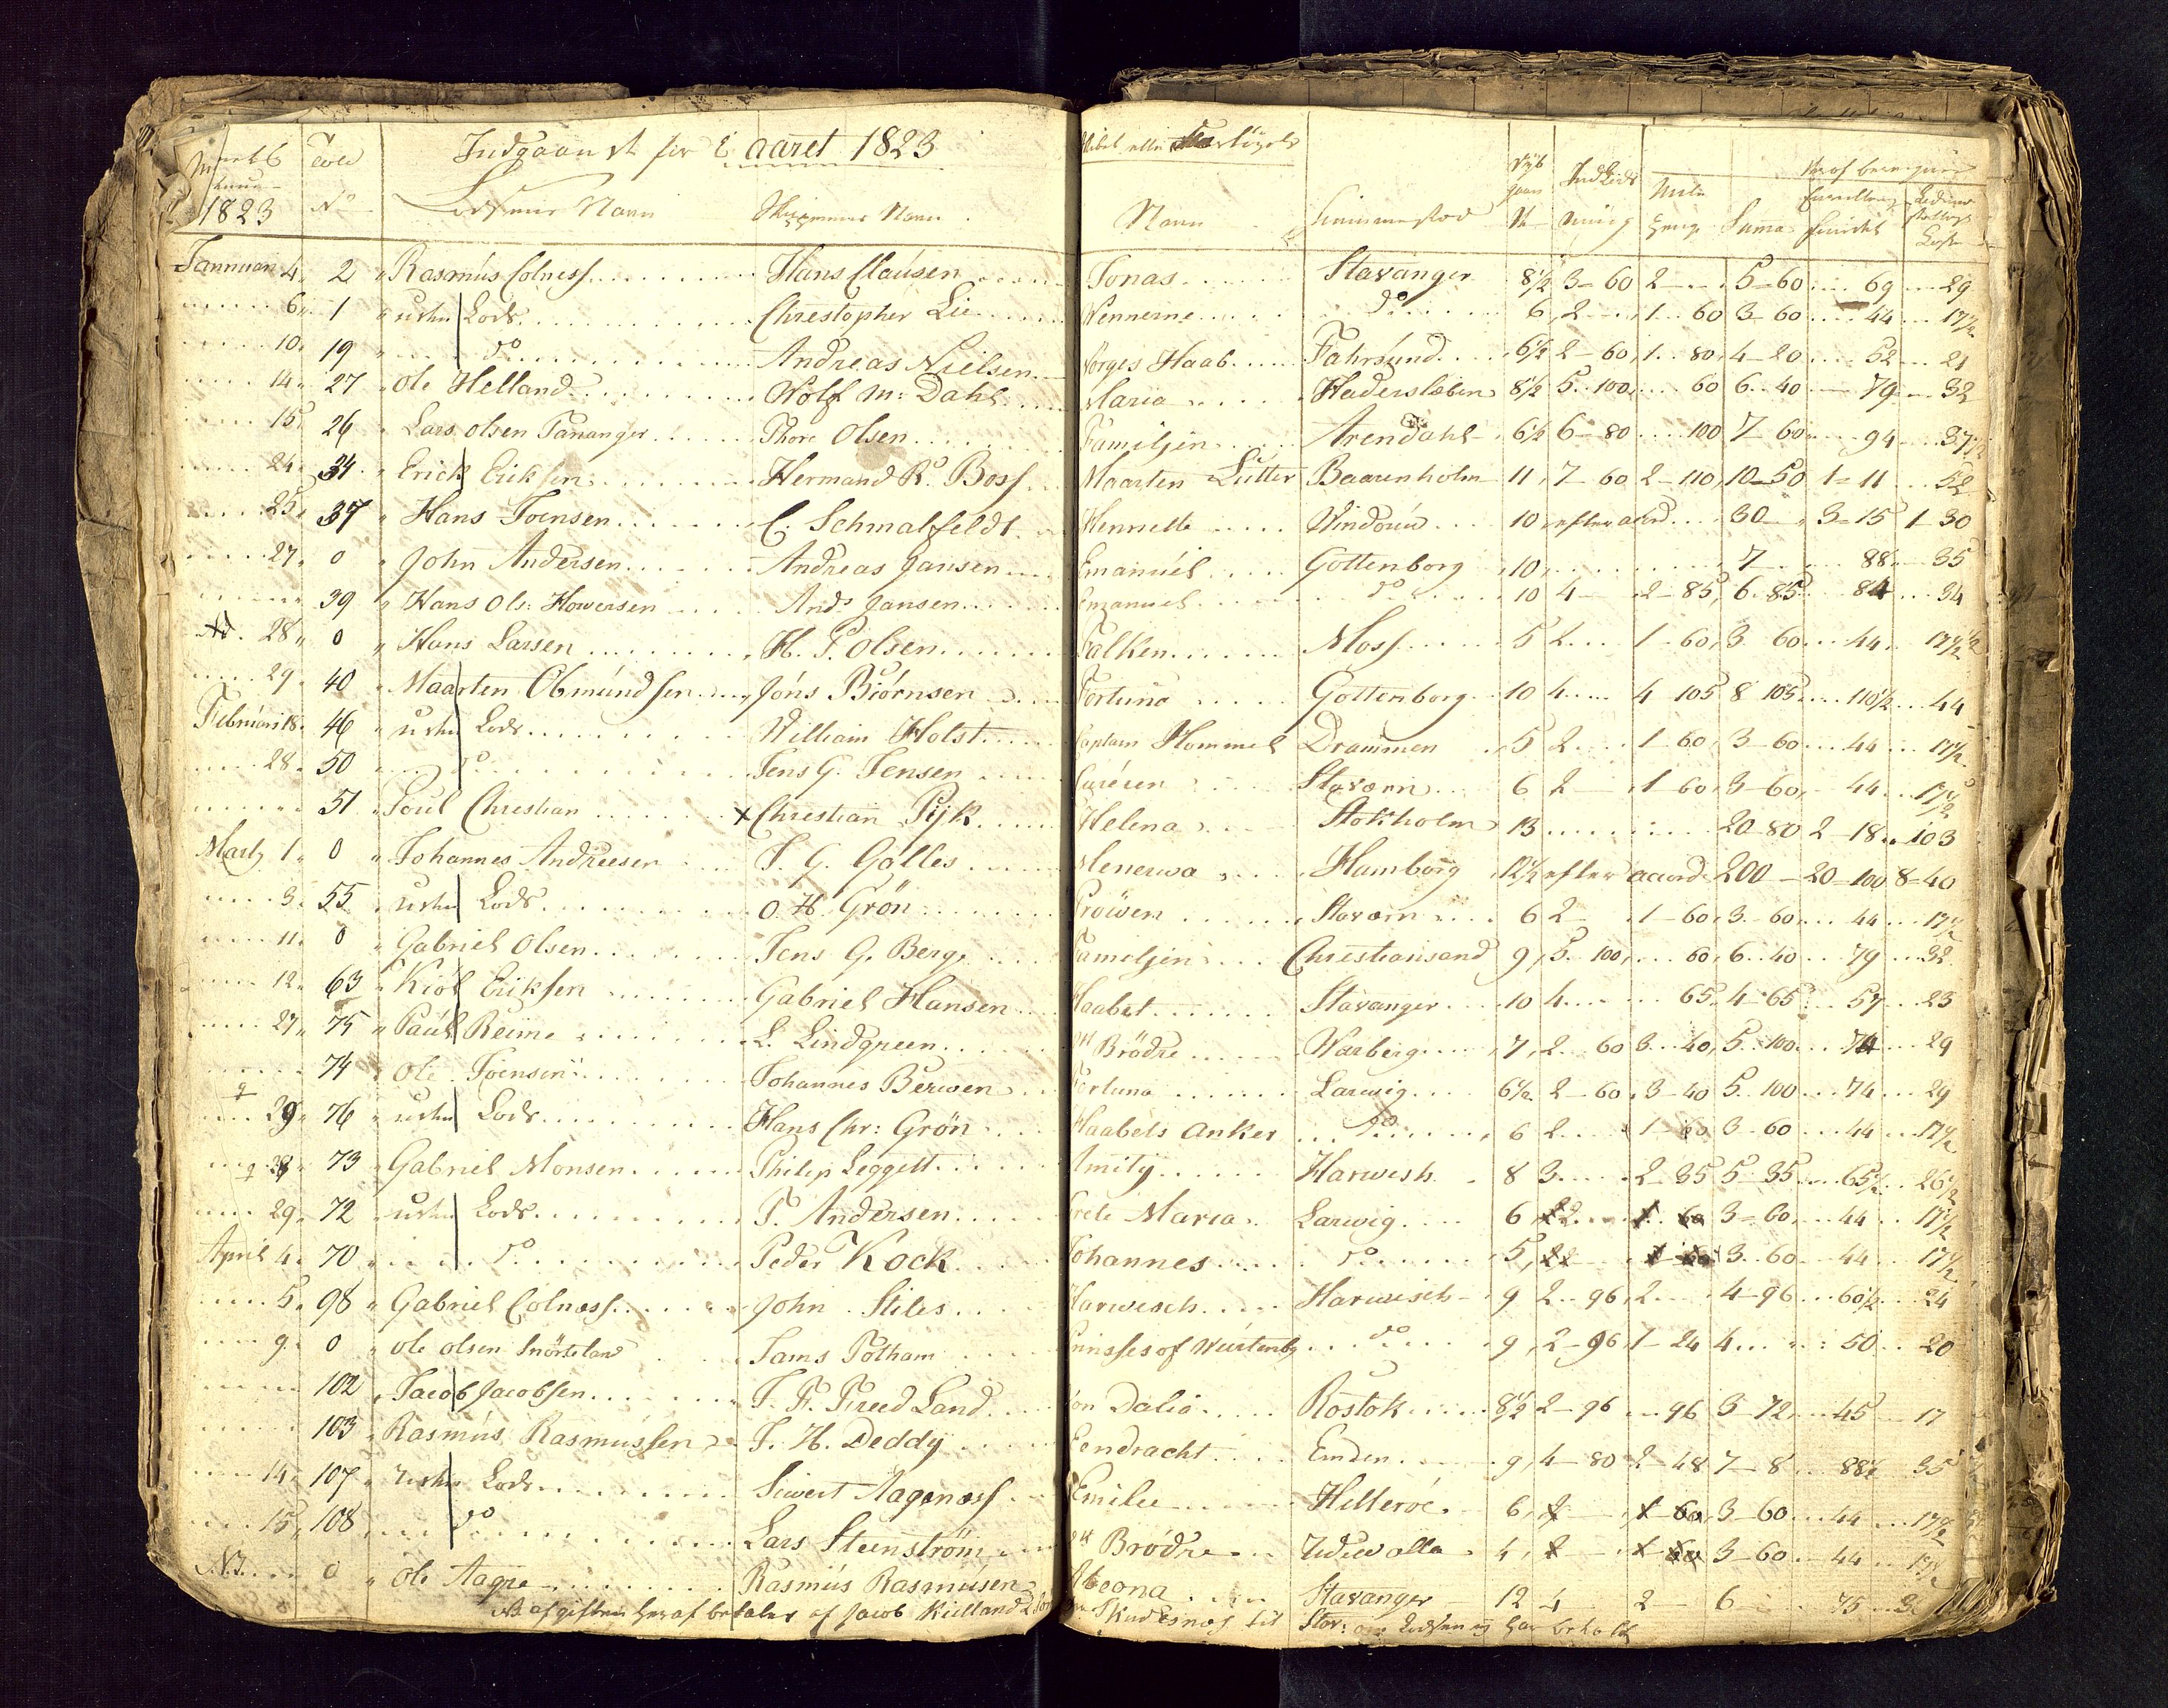 Indgaaende for aaret 1823
1823 No Lodsens Navn Skippernes Navn Navn Summa
Januari 4 2 Rasmus Colness Hans Clausen Jonas Stavanger 8½ 3-60 2 5-60 69 29
6 1 Lods Christopher Lie Wennerne do 6 2 1 60 3-60 44 17½
10 19 do Andreas Nielsen Norges Haab Fahrsund 6½ 2-60 1 80 4-20 52 21
14 27 Ole Helland Wolf M: Dahl Maria Hadersleben 8½ 5 100 60 6 40 79 32
15 26 Lars Olsen Tananger Thore Olsen Familjen Arendahl 6½ 6-80 100 7 60 94 37½
24 34 Erick Eriksen Hermand R. Boss Maarten Lutter Baarenholm 11 7-60 2-110 10-50 1-11 52
25 37 Hans Joensen C. Schmalfeldt Hennette Windau 10 efter acord 30 3-15 1-30
27 0 John Andersen Andreas Jansen Emanuel Gottenborg 10 7 88 35
39 Hans Ols: Howersen Ands Jansen Emanuel do 10 4 2-85 6-85 84 34
28 0 Hans Larsen H. P. Olsen Falken Moss 5 2 1-60 3 60 44 17½
29 40 Maarten Obmundsen Jöns Biörnsen Fortuna Gottenborg 10 4 4 105 8 105 110½ 44
Februari 18 46 Lods William Holst Captain Hommel Drammen 5 2 1-60 3-60 44 17½
28 50 do Jens G. Jensen Stavern 6 2 1 60 3-60 44 17½
51 Poul Christian Christian Pijk Helena Stokholm 13 20-80 2-18 103
Marty 1 0 Johannes Andreesen J. G. Golles Menerwa Hamborg 12½ efter acord 200 20-100 8-40
3 55 Lods O. H. Grön Pröwen Stavern 6 2 1-60 3-60 44 17½
11 0 Gabriel Olsen Jens G. Berge Fameljen Christiansand 9 5 100 60 6 40 79 32
12 63 Kiöl Eriksen Gabriel Hansen Haabet Stavanger 10 4 65 4-65 57 23
27 75 Paul Reime L. Lindgreen Brödre Warberg 7 2 60 3 40 5 100 74 29
74 Ole Joensen Johannes Berwen Fortuna Larwig 6½ 2-60 3-40 5 100 74 29
29 76 Lods Hans Chr: Grön Haabets Anker do 6 2 1-60 3-60 44 17½
73 Gabriel Monsen Philip Leggett Amity Harwish 8 3 2-35 5-35 65½ 26½
29 72 Lods T. Andersen Maria Larwig 6 2 3-60 44 17½
April 4 70 do Peder Kock Johannes do 5 3 60 44 17½
5 98 Gabriel Colness John Stiles Harwisch Harwisch 9 2 96 2 4-96 60½ 24
9 0 Ole Olsen Snörteland Jams Totham Prinsses of Würtenbg do 9 2-96 1-24 4 50 20
102 Jacob Jacobsen Von Dalia Rostok 8½ 2-96 96 3-72 45 17
103 Rasmus Rasmussen J. H. Deddy Eendracht Emden 9 4-80 2-48 7-8 88½ 35
14 107 Lods Siwert Aagenæs Emilie Hitteröe 6 3-60 44 17½
15 108 do Lars Steenström Brödre Udewalla 4 3-60 44 17½
0 Ole Aagre Rasmus Rasmusen Stavanger 12 4 2 6 75
NB afgiften heraf betaler af Jacob Kielland